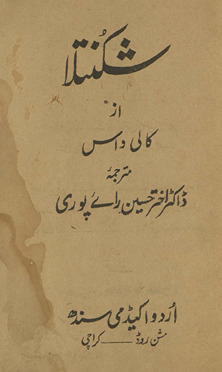 شکُنتلا
از
کالی داس
مترجمۂ
ڈاکٹر اختر حسین رائے پوری
اُردو اکیڈمی سندھ
مشن روڈ ــــ کراچی